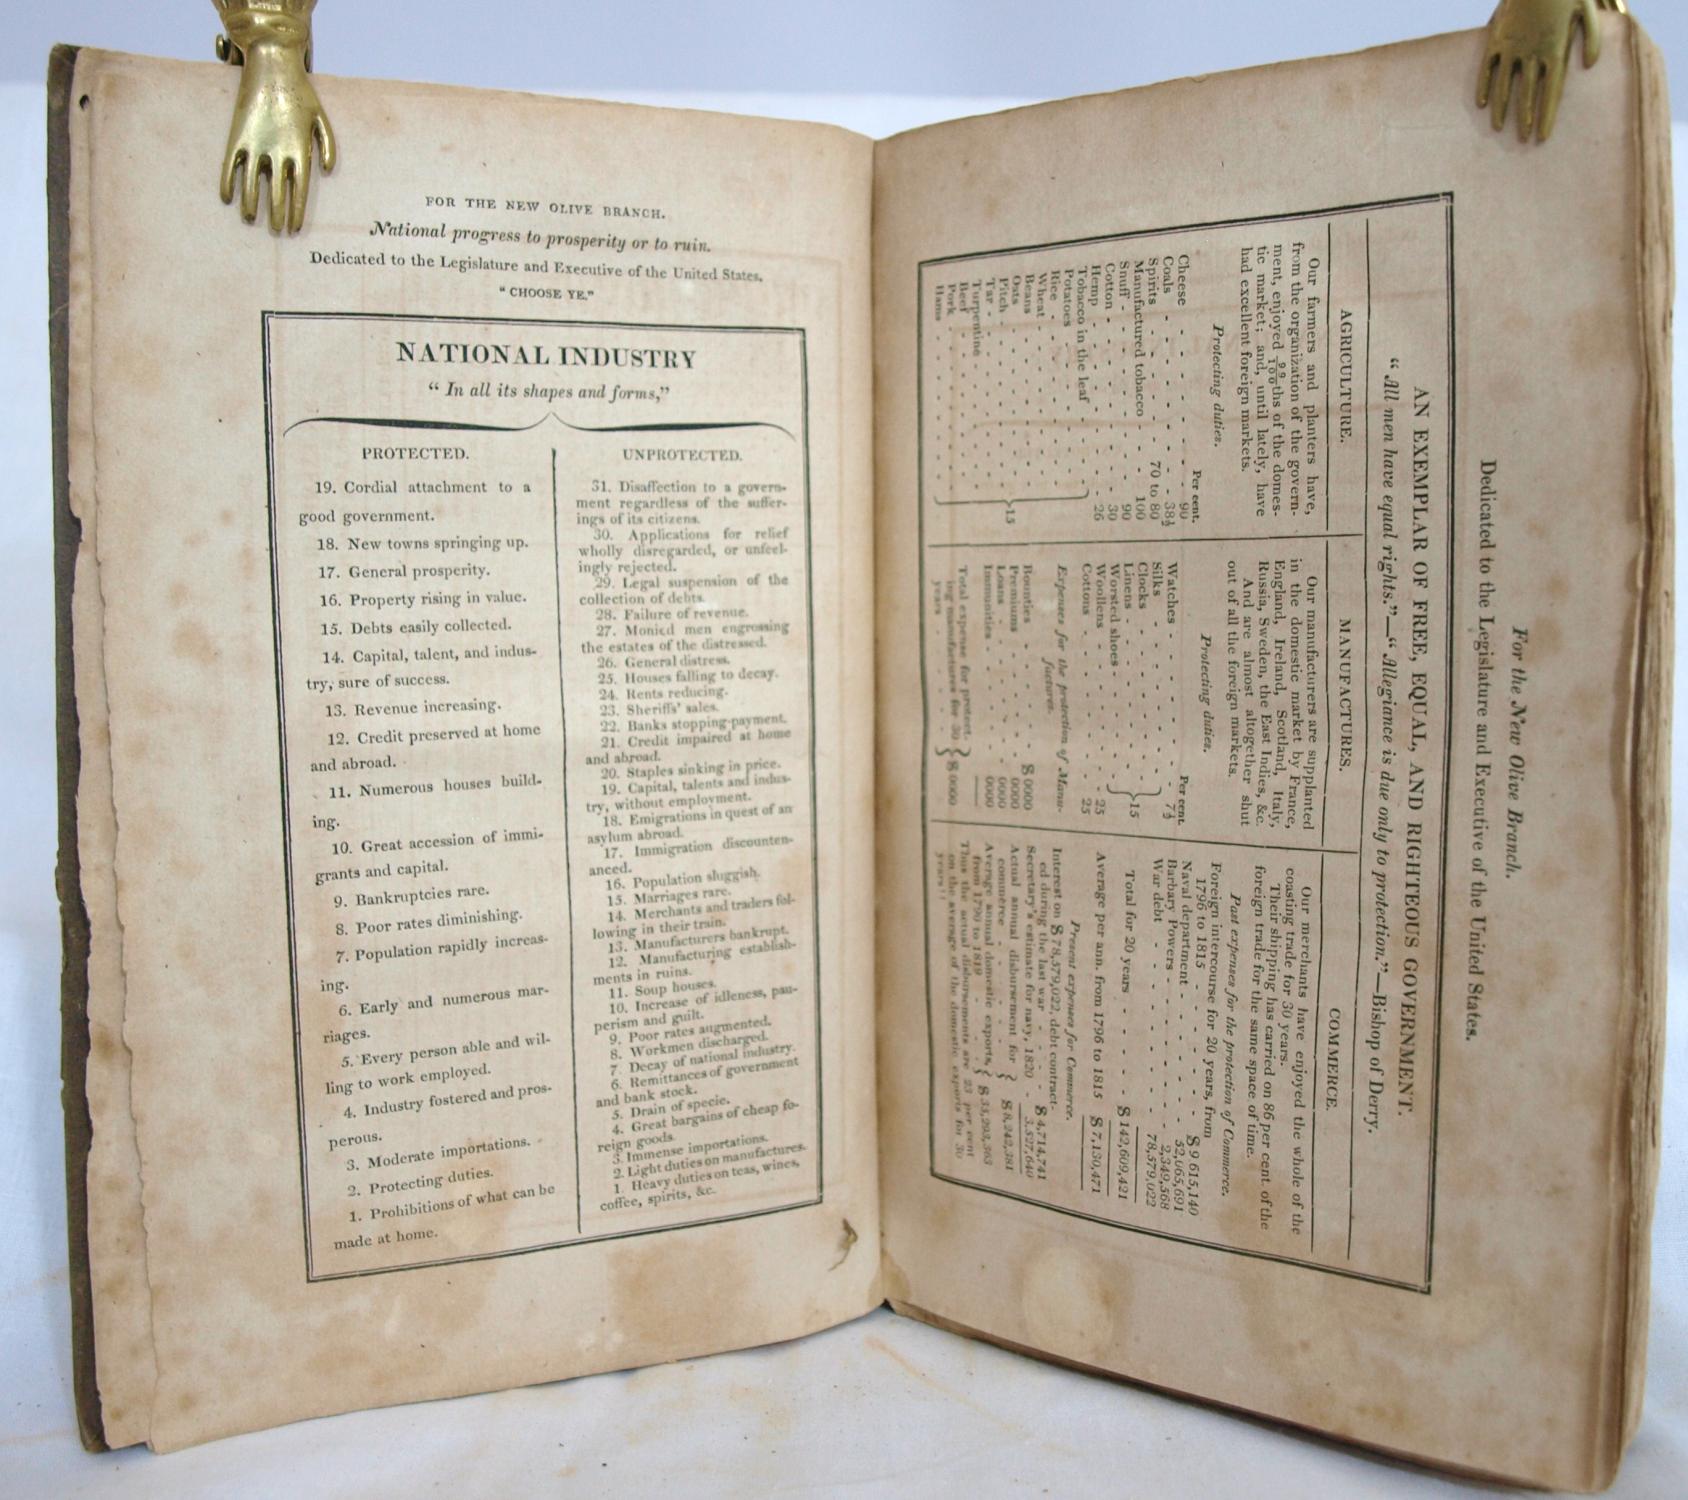 FOR THE NEW OLIVE BRANCH.
National progress to prosperity or to ruin.
Dedicated to the Legislature and Executive of the United States.
"CHOOSE YE."
NATIONAL INDUSTRY
"In all its shapes and forms,"
PROTECTED.
19. Cordial attachment to a
good government.
18. New towns springing up.
17. General prosperity.
16. Property rising in value.
15. Debts easily collected.
14. Capital, talent, and indus-
try, sure of success.
13. Revenue increasing.
12. Credit preserved at home
and abroad.
11. Numerous houses build-
ing.
10. Great accession of immi-
grants and capital.
9. Bankruptcies rare.
8. Poor rates diminishing.
7. Population rapidly increas-
ing.
6. Early and numerous mar-
riages.
5. Every person able and wil-
ling to work employed.
4. Industry fostered and pros-
perous.
3. Moderate importations.
2. Protecting duties.
1. Prohibitions of what can be
made at home.
UNPROTECTED.
31. Disaffection to a govern-
ment regardless of the suffer-
ings of its citizens.
30. Applications for relief
wholly disregarded, or unfeel-
ingly rejected.
29. Legal suspension of the
collection of debts.
28. Failure of revenue.
27. Monied men engrossing
the estates of the distressed.
26. General distress.
25. Houses falling to decay.
24. Rents reducing.
23. Sheriffs' sales.
22. Banks stopping payment.
21. Credit impaired at home
and abroad.
20. Staples sinking in price.
19. Capital, talents and indus-
try, without employment.
18. Emigrations in quest of an
asylum abroad.
17. Immigration discounten-
anced.
16. Population sluggish.
15. Marriages rare.
14. Merchants and traders fol-
lowing in their train.
13. Manufacturers bankrupt.
12. Manufacturing establish-
ments in ruins.
11. Soup houses.
10. Increase of idleness, pau-
perism and guilt.
9. Poor rates augmented.
8. Workmen discharged.
7. Decay of national industry.
6. Remittances of government
and bank stock.
5. Drain of specie.
4. Great bargains of cheap fo-
reign goods.
3. Immense importations.
2. Light duties on manufactures.
1. Heavy duties on teas, wines,
coffee, spirits, &c.
For the New Olive Branch.
Dedicated to the Legislature and Executive of the United States.
AN EXEMPLAR OF FREE, EQUAL, AND RIGHTEOUS GOVERNMENT.
"All men have equal rights."—"Allegiance is due only to protection."—Bishop of Derry.
AGRICULTURE.
Our farmers and planters have,
from the organization of the govern-
ment, enjoyed 99/100ths of the domes-
tic market; and, until lately, have
had excellent foreign markets.
Protecting duties.
Per cent.
Cheese - - - 90
Coals - - - 38½
Spirits - - - 70 to 80
Manufactured tobacco - - 100
Snuff - - - 90
Cotton - - - 30
Hemp - - - 26
Tobacco in the leaf
Potatoes
Rice
Wheat
Beans
Oats
Pitch
Tar
Turpentine
Beef
Pork
Hams
15
MANUFACTURES.
Our manufacturers are supplanted
in the domestic market by France,
England, Ireland, Scotland, Italy,
Russia, Sweden, the East Indies, &c.
And are almost altogether shut
out of all the foreign markets.
Protecting duties.
Per cent.
Watches - - - 7½
Silks
Clocks
Linens
Worsted shoes
15
Woollens - - - 25
Cottons - - - 25
Expenses for the protection of Manu-
factures.
Bounties - - - $ 0000
Premiums - - - 0000
Loans - - - 0000
Immunities - - - 0000
Total expense for protect-
ing manufactures for 30
years - - - $ 0000
COMMERCE.
Our merchants have enjoyed the whole of the
coasting trade for 30 years.
Their shipping has carried on 86 per cent. of the
foreign trade for the same space of time.
Past expenses for the protection of Commerce.
Foreign intercourse for 20 years, from
1796 to 1815 - - - $ 9,615,140
Naval department - - - 52,065,691
Barbary Powers - - - 2,349,568
War debt - - - 78,579,022
Total for 20 years - - - $ 142,609,421
Average per ann. from 1796 to 1815 $ 7,130,471
Present expenses for Commerce.
Interest on $ 78,579,022, debt contract-
ed during the last war - - $ 4,714,741
Secretary's estimate for navy, 1820 - 3,527,640
Actual annual disbursement for
commerce - - - $ 8,242,381
Average annual domestic exports,
from 1790 to 1819 - - $ 35,293,363
Thus the actual disbursements are 23 per cent
on the average of the domestic exports for 30
years!!